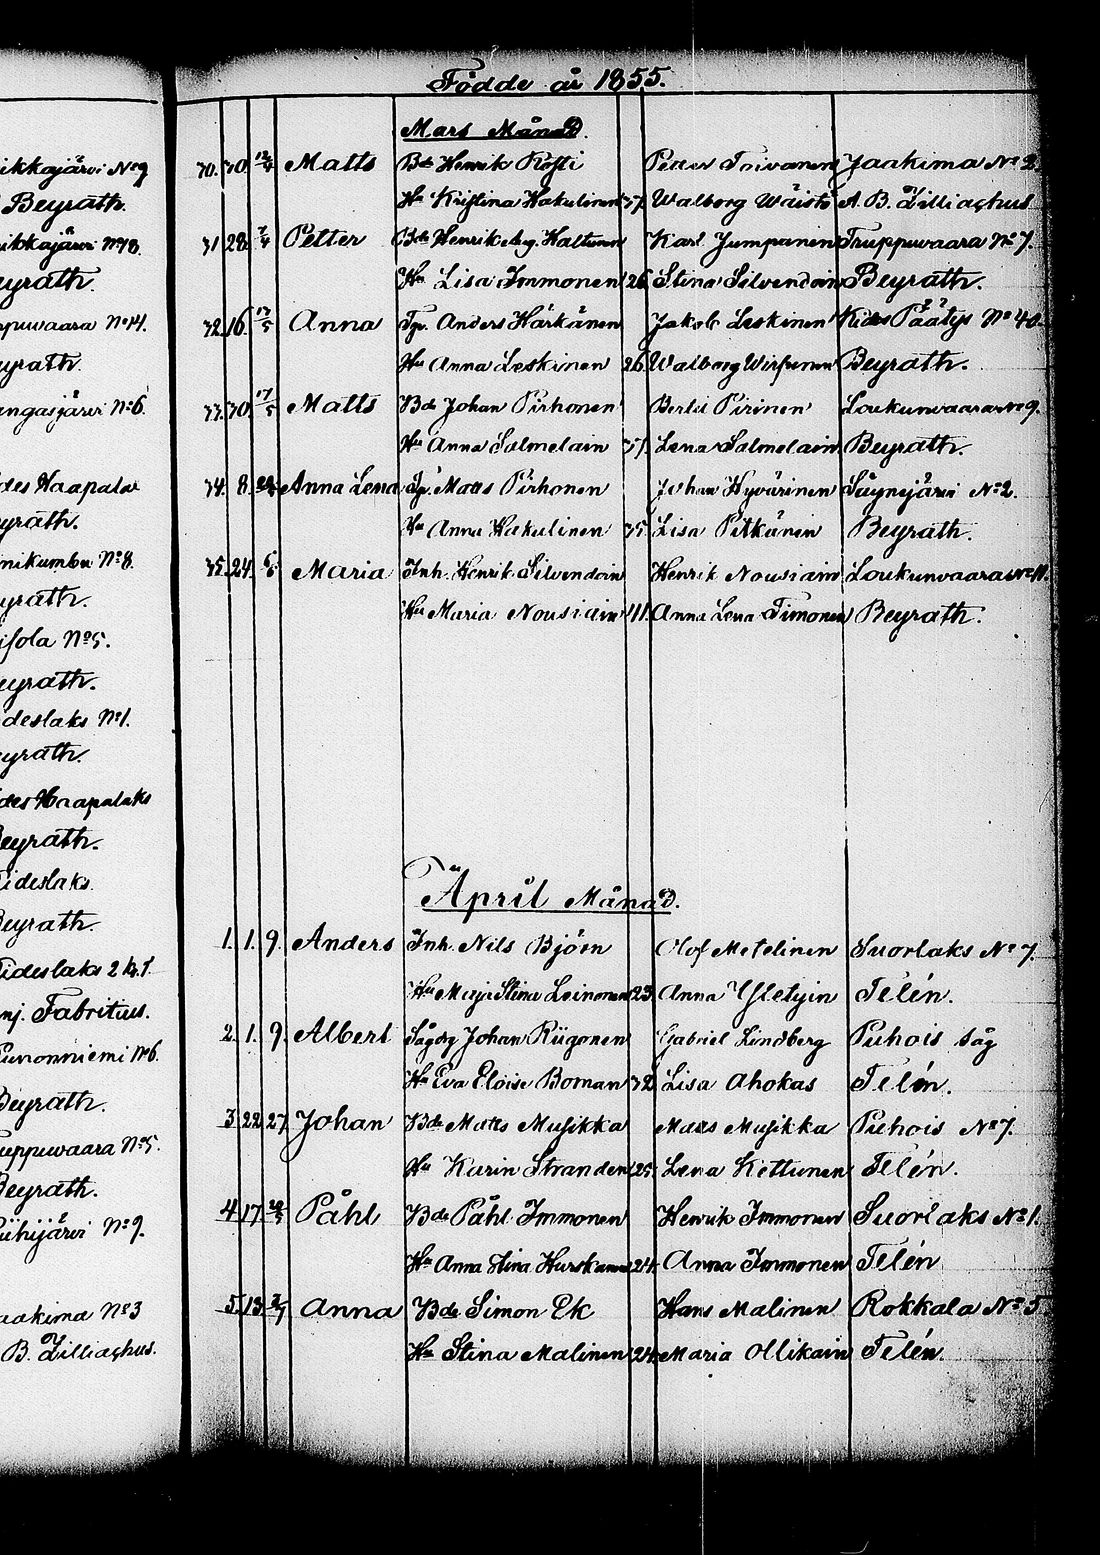 ikkajärvi No 9
Beyrath.
ikkajärvi No 8.
eyrath.
ppuwaara No 14.
yrath.
angasjärvi No 6.
des Haapala
yrath.
nikumbu No 8.
yrath.
isola No 5.
eyrath.
deslaks No 1.
eyrath.
des Haapalaks
Beyrath.
ideslaks.
Beyrath.
ideslaks 2 & 1.
nj. Fabritius.
Puronniemi No 6.
Beyrath.
uppuwaara No 5.
Beyrath.
iihijärvi No 9.
aakima No 3
B. Lilliaghus.
Födde år 1855.
Mars Månad.
30. 30. Matts Bde Henrik Rosti Petter Toivanen Jaakima No 2.
Hu Kristina Hakulinen 37. Walborg Wäistö A. B. Lilliaghus
31 28 7/4 Petter Bde Henrik Aug. Haltunen Karl Jumpanen Truppuwaara No 7.
Hu Lisa Immonen 26 Stina Silvendoin Beyrath.
32 16 17/5 Anna Tp. Anders Härkänen Jakob Leskinen Kides Päätys No 40.
Hu Anna Leskinen 26 Walborg Beyrath.
33. 30. 17/5 Matts Bde Johan Pirhonen Bertil Pirinen Loukunvaara No 9.
Hu Anna Salmelain 37. Lena Salmelain Beyrath.
34. 8. Anna Lena Tp. Matts Pirhonen Johan Hyvärinen Suynejärvi No 2.
Hu Anna Hakulinen 35. Lisa Pitkänin Beyrath.
35. 24. 6/5 Maria Inh. Henrik Silvendoin Henrik Nousiain Loukunvaara No 11.
Hu Maria Nousiain 41. Anna Lena Timonen Beyrath.
April Månad.
1. 1. 9. Anders Inh. Nils Björn Olof Metelinen Suorlaks No 7.
Hu Maja Stina Loinonen 23. Anna Telén.
2. 1. 9. Albert Sågdg Johan Riigonen Gabriel Lindberg Puhois såg
Hu Eva Eloise Boman 32 Lisa Ahokas Telén.
3. 22 27. Johan Bde Matts Musikka Matts Musikka Puhois No 7.
Hu Karin Stranden 25. Lena Kettunen Telén.
4. 17. Påhl Bde Påhl Immonen Henrik Immonen Suorlaks No 1.
Hu Anna Stina Hurskainen 24. Anna Immonen Telén
5. 13. Anna Bde Simon Ek Hans Malinen Rokkala No 5
Hu Stina Malinen 24. Maria Ollikain Telén.